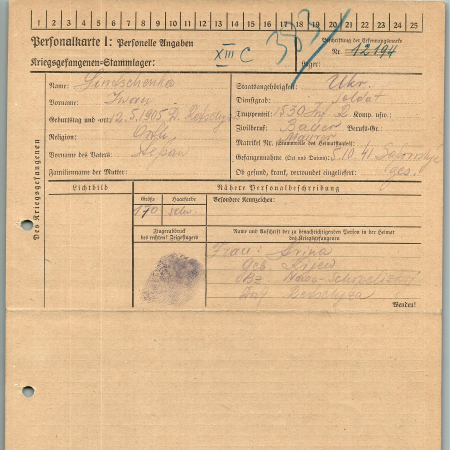 1 2 3 4 5 6 7 8 9 10 11 12 13 14 15 16 17 18 19 20 21 22 23 24 25
Personalkarte I: Personelle Angaben
Beschriftung der Erkennungsmarke
Nr. 12194
Kriegsgefangenen-Stammlager: XIII C
Lager:
383
Des Kriegsgefangenen
Name:
Vorname: Iwan
Geburtstag und -ort: 12.5.1905
Religion: Orth.
Vorname des Vaters: Stepan
Familienname der Mutter:
Staatsangehörigkeit: Ukr.
Dienstgrad: Soldat
Truppenteil: 1830 Komp. usw.:
Zivilberuf: Bauer Berufs-Gr.:
Maurer
Matrikel Nr. (Stammrolle des Heimatstaates):
Gefangennahme (Ort und Datum): 5.10.41
Ob gesund, krank, verwundet eingeliefert: ges.
Lichtbild
Nähere Personalbeschreibung
Größe Haarfarbe Besondere Kennzeichen:
170 schw.
Fingerabdruck
des rechten! Zeigefingers
Name und Anschrift der zu benachrichtigenden Person in der Heimat
des Kriegsgefangenen
Frau: Arina
geb.
Wenden!